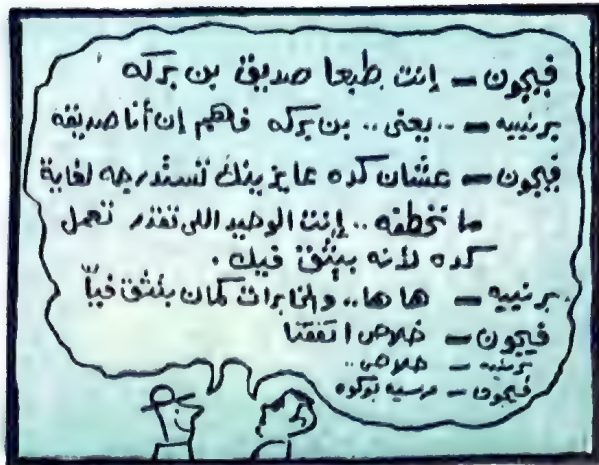 فيجون - إنت طبعا صديق بن بركه
برنييه - .. يعنى .. بن بركه فاهم إن أنا صديقه
فيجون - عشان كده عايزينك تستدرجه لغاية
ما تخطفه .. إنت الوحيد اللى تقدر تعمل
كده لأنه بيثق فيك .
برنييه - ها ها .. والمخابرات كمان بتثق فيّا
فيجون - خلاص اتفقنا
برنييه - خلاص ..
فيجون - مرسيه بوكوه